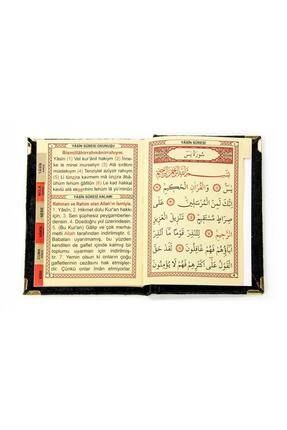 YÂSİN SÛRESİ OKUNUŞU
Bismillâhirrahmânirrahıym.
Yâsîn (1) Vel kur'ânil hakıym (2) İnne-
ke le minel murseliyn (3) Alâ sırâtın
müstekıym (4) Tenziylel aziyzir rahıym
(5) Li tünzira kavmem mâ ünzira âbâ
ühüm fehüm ğâfilûn (6) Le kad hakkal
kavlü alâ ekserihim fehüm lâ yü'minûn
YÂSİN SÛRESİ ANLAMI
Rahman ve Rahim olan Allah'ın ismiyle.
1. Yâsîn, 2. Hikmet dolu Kur'an hakkı
için, 3. Sen şüphesiz peygamberler-
densin. 4. Dosdoğru yol üzerindesin.
5. (Bu Kur'an) Gâlip ve çok merha-
metli Allah tarafından indirilmiştir. 6.
Babaları uyarılmamış, bu yüzden
kendileri de gaflet içinde kalmış bir
toplumu uyarman için indirilmiştir.
7. Yemin olsun ki onların çoğu
gafletlerinin cezasını hak etmişler-
dir. Çünkü onlar îman etmiyorlar.
YÂSİN SÛRESİ
سُورَةُ يٰسٓ
بِسْمِ اللّٰهِ الرَّحْمٰنِ الرَّحِيمِ
يٰسٓ ۞ وَالْقُرْاٰنِ الْحَكِيمِ ۞
اِنَّكَ لَمِنَ الْمُرْسَلِينَ ۞ عَلٰى
صِرَاطٍ مُسْتَقِيمٍ ۞ تَنْزِيلَ الْعَزِيزِ
الرَّحِيمِ ۞ لِتُنْذِرَ قَوْمًا مَا اُنْذِرَ
اٰبَاؤُهُمْ فَهُمْ غَافِلُونَ ۞ لَقَدْ حَقَّ
الْقَوْلُ عَلٰى اَكْثَرِهِمْ فَهُمْ لَا يُؤْمِنُونَ